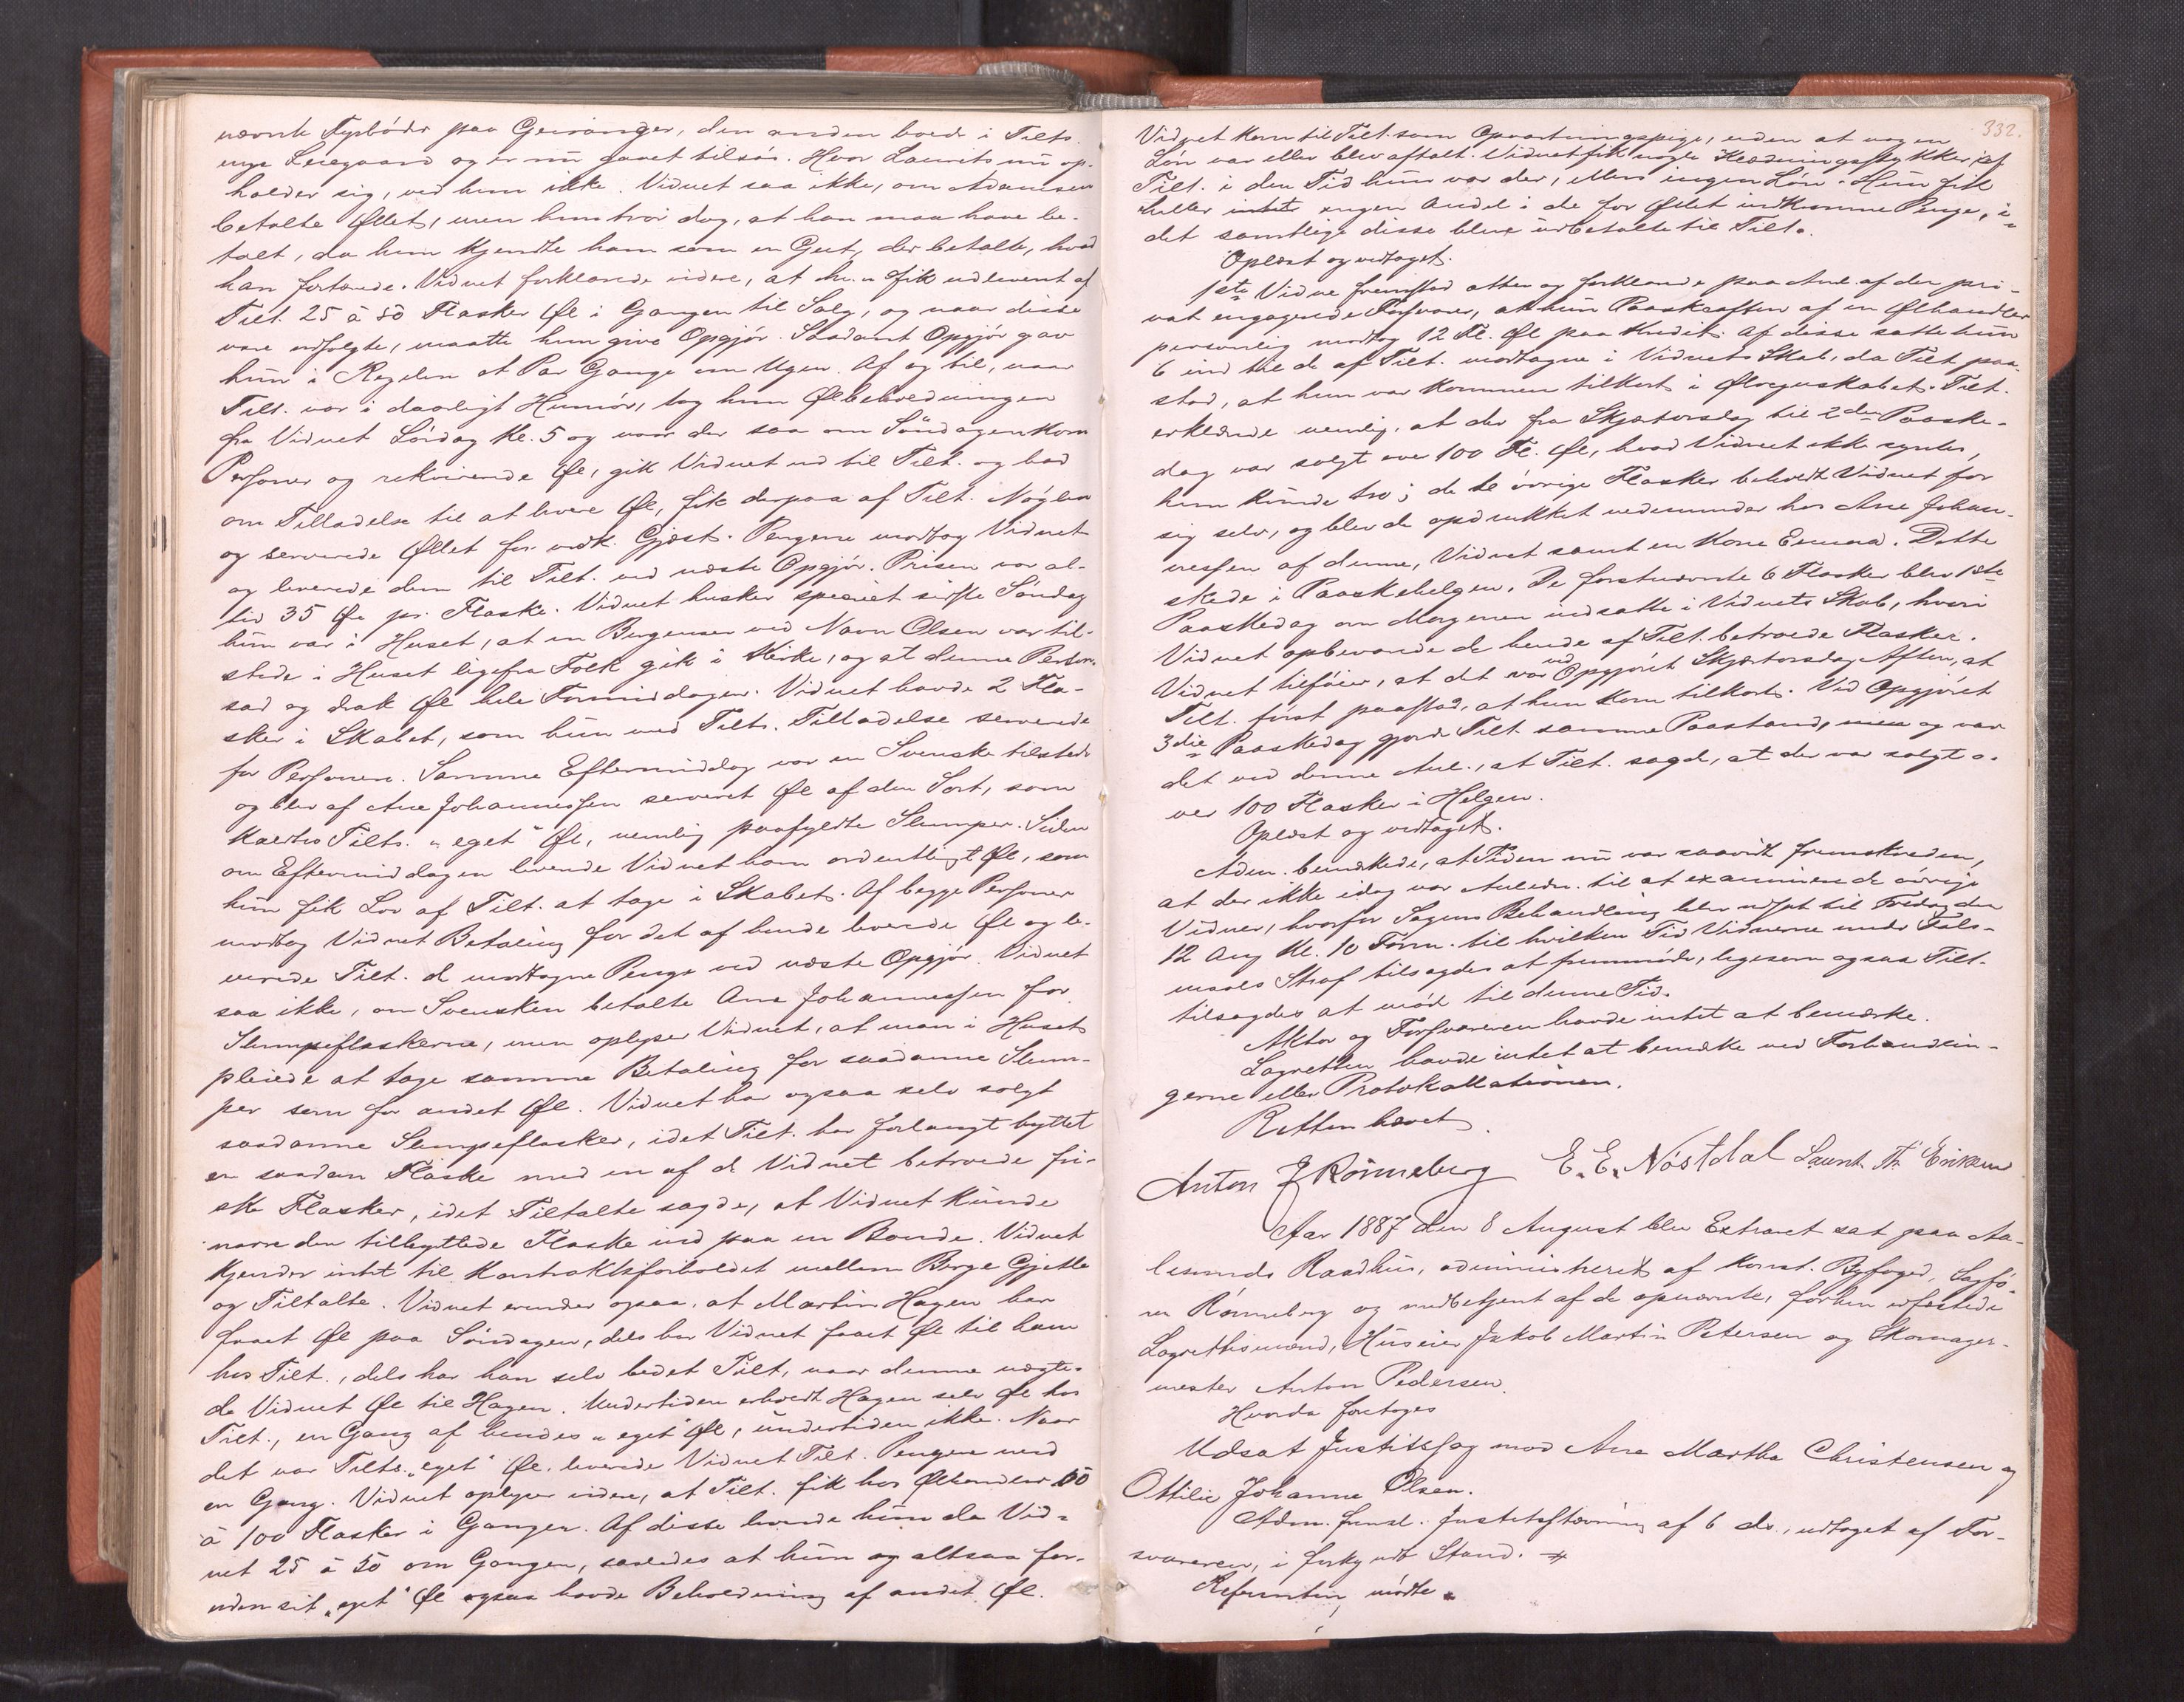 nævnte Nyebøder paa Geiranger, den anden boede i Tilts.
nye Leiegaard og er nu faret tilsøs. Hvor Laurits nu op-
holder sig, ved hun ikke. Vidnet saa ikke, om Adamsen
betalte Øllet, men hun tror dog, at han maa have be-
talt, da hun kjendte ham som en Gut, der betalte, hvad
han fortærede. Vidnet forklarede videre, at hun fik udleveret af
Tilt. 25 à 50 Flasker Øl i Gangen til Salg, og naar disse
vare udsolgte, maatte hun give Opgjør. Saadant Opgjør gav
hun i Regelen et Par Gange om Ugen. Af og til, naar
Tilt. var i daarligt Humør, tog hun Ølbeholdningen
fra Vidnet Lørdag Kl. 5 og naar der saa om Søndagen kom
Personer og rekvirerede Øl, gik Vidnet ud til Tilt. og bad
om Tilladelse til at levere Øl, fik derpaa af Tilt. Nøglen
og serverede Øllet for vedk. Gjæst. Pengene modtog Vidnet
og leverede dem til Tilt. ved næste Opgjør. Prisen var al-
tid 35 Øre pr. Flaske. Vidnet husker specielt sidste Søndag
hun var i Huset, at en Bergenser ved Navn Olsen var til-
stede i Huset ligefra Folk gik i Kirke, og at denne Person
sad og drak Øl hele Formiddagen. Vidnet havde 2 Fla-
sker i Skabet, som hun med Tilts. Tilladelse serverede
for Personen. Samme Eftermiddag var en Svenske tilstede
og blev af Ane Johannessen serveret Øl af den Sort, som
kaldtes Tilts. „eget“ Øl, nemlig paafyldte Slumper. Siden
om Eftermiddagen leverede Vidnet ham ordentligt Øl, som
hun fik Lov af Tilt. at tage i Skabet. Af begge Personer
modtog Vidnet Betaling for det af hende leverede Øl og le-
verede Tilt. de modtagne Penge ved næste Opgjør. Vidnet
saa ikke, om Svensken betalte Ane Johannessen for
Slumpeflaskerne, men oplyser Vidnet, at man i Huset
pleiede at tage samme Betaling for saadanne Slum-
per som for andet Øl. Vidnet har ogsaa selv solgt
saadanne Slumpeflasker, idet Tilt. har forlangt byttet
en saadan Flaske med en af de Vidnet betroede fri-
ske Flasker, idet Tiltalte sagde, at Vidnet kunde
narre den tilbyttede Flaske ind paa en Bonde. Vidnet
kjender intet til Kontraktsforholdet mellem Berge Gjetle
og Tiltalte. Vidnet erindrer ogsaa, at Martin Hagen har
faaet Øl paa Søndagen, dels har Vidnet faaet Øl til ham
hos Tilt., dels har han selv bedet Tilt, naar denne nægte-
de Vidnet Øl til Hagen. Undertiden erholdt Hagen selv Øl hos
Tilt., en Gang af hendes „eget“ Øl, undertiden ikke. Naar
det var Tilts. „eget“ Øl, leverede Vidnet Tilt. Pengene med
en Gang. Vidnet oplyser videre, at Tilt. fik hos Ølhandler 50
à 100 Flasker i Gangen. Af disse leverede hun da Vid-
net 25 à 50 om Gangen, saaledes at hun og altsaa for-
uden sit „eget“ Øl ogsaa havde Beholdning af andet Øl.
332.
Vidnet kom til Tilt. som Opvartningspige, uden at nogen
Løn var eller blev aftalt. Vidnet fik nogle Klædningsstykker af
Tilt. i den Tid hun var der, ellers ingen Løn. Hun fik
heller intet ingen Andel i de for Øllet indkomne Penge, i-
det samtlige disse bleve udbetalte til Tilt.
Oplæst og vedtaget.
1ste Vidne fremstod atter og forklarede paa Anl. af den pri-
vat engagerede Forsvarer, at hun Paaskeaften af en Ølhandler
personlig modtog 12 Fl. Øl paa Kredit. Af disse satte hun
6 ind til de af Tilt. modtagne i Vidnets Skab, da Tilt. paa-
stod, at hun var kommen tilkort i Ølregnskabet. Tilt.
erklærede nemlig, at der fra Skjærtorsdag til 2den Paaske-
dag var solgt over 100 Fl. Øl, hvad Vidnet ikke syntes,
hun kunde tro; de 6 øvrige Flasker beholdt Vidnet for
sig selv, og blev de opdrukket nedenunder hos Ane Johan-
nessen af denne, Vidnet samt en Kone Emma. Dette
skede i Paaskehelgen. De førstnævnte 6 Flasker blev 1ste
Paaskedag om Morgenen indsatte i Vidnets Skab, hvori
Vidnet opbevarede de hende af Tilt. betroede Flasker.
Vidnet tilføier, at det var ved Opgjøret Skjærtorsdag Aften, at
Tilt. først paastod, at hun kom tilkort. Ved Opgjøret
3die Paaskedag gjorde Tilt samme Paastand, men og var
det ved denne Anl., at Tilt. sagde, at der var solgt o-
ver 100 Flasker i Helgen.
Oplæst og vedtaget.
Adm. bemærkede, at Tiden nu var saavidt fremskreden,
at der ikke idag var Anledn. til at examinere de øvrige
Vidner, hvorfor Sagens Behandling blev udsat til Fredag den
12 Aug Kl. 10 Form. til hvilken Tid Vidnerne under Fals-
maals Straf tilsagdes at fremmøde, ligesom ogsaa Tilt.
tilsagdes at møde til denne Tid.
Aktor og Forsvareren havde intet at bemærke.
Lagretten havde intet at bemærke ved Forhandlin-
gerne eller Protokollationen.
Retten hævet.
Anton J Rönneberg E. E. Nöstdal Laurit Th Eriksen
Aar 1887 den 8 August blev Extraret sat paa Aa-
lesunds Raadhus, administreret af konst. Byfoged, Sagfø-
rer Rönneberg og medbetjent af de opnævnte, forhen edfæstede
Lagrettesmænd, Huseier Jakob Martin Petersen og Skomager-
mester Anton Pedersen.
Hvorda foretoges
Udsat Justitssag mod Ane Martha Christensen og
Ottilie Johanne Olsen.
Adm. freml. Justitsstævning af 6 ds., udtaget af For-
svareren, i forkyndt Stand.
Referentin mødte.